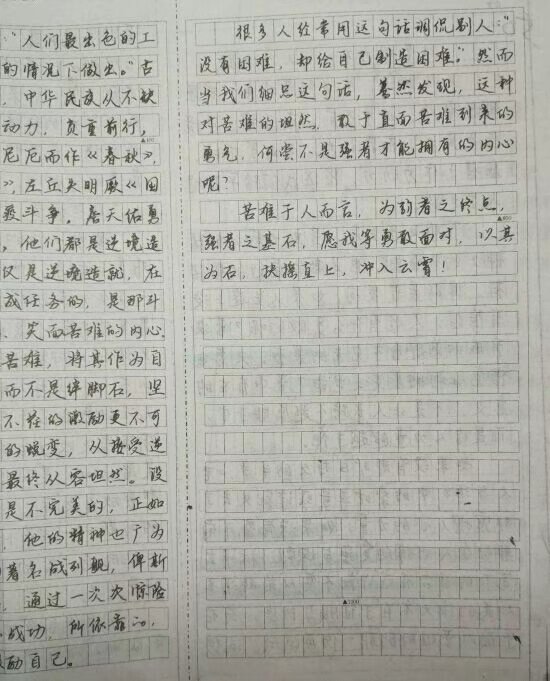 "人们最出色的工
的情况下做出。"古
,中华民族从不缺
动力,负重前行,
尼厄而作《春秋》,
》,左丘失明厥《国
聚斗争,詹天佑勇
,他们都是逆境造
仅是逆境造就,在
成任务的,是那斗
、笑面苦难的内心。
苦难,将其作为自
而不是绊脚石,坚
不在的激励更不可
的蜕变,从接受逆
最终从容坦然。没
是不完美的,正如
,他的精神也广为
著名战列舰,俾斯
,通过一次次惊险
成功,所依靠的,
励自己。
很多人经常用这句话调侃别人:"
没有困难,却给自己制造困难。"然而
当我们细思这句话,蓦然发现,这种
对苦难的坦然,敢于直面苦难到来的
勇气,何尝不是强者才能拥有的内心
呢?
苦难于人而言,为弱者之终点,
强者之基石,愿我等勇敢面对,以其
为石,扶摇直上,冲入云霄!
▲800
▲1000